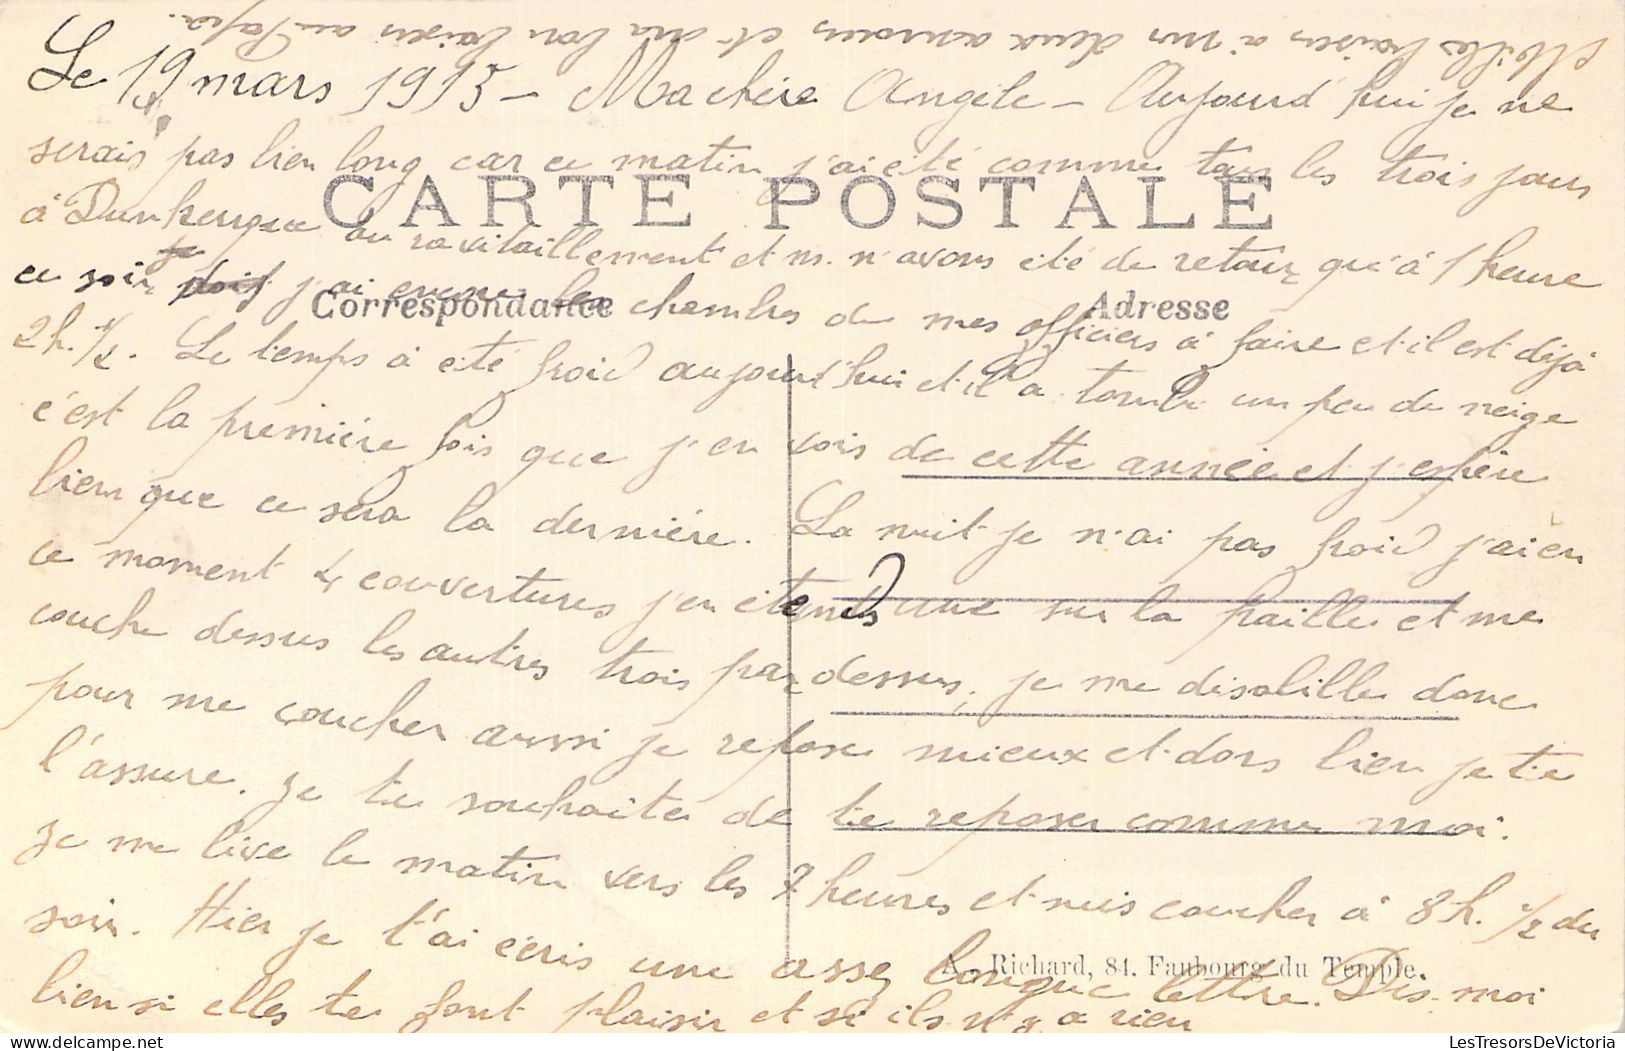 Le 19 mars 1915 - Ma chère Angèle - Aujourd'hui je ne
serais pas bien long car ce matin j'ai été comme tous les trois jours
CARTE POSTALE
à Dunkerque au ravitaillement et n. n'avons été de retour qu'à 1 heure
ce soir j'ai encore les chambres de mes officiers à faire et il est déjà
Correspondance Adresse
2h. 1/2. Le temps a été froid aujourd'hui et il a tombé un peu de neige
c'est la première fois que j'en vois de cette année et j'espère
bien que ce sera la dernière. La nuit je n'ai pas froid j'ai en
ce moment 4 couvertures j'en étends une sur la paille et me
couche dessus les autres trois par dessus, je me désabille donc
pour me coucher aussi je repose mieux et dors bien je te
l'assure. Je te souhaite de te reposer comme moi.
Je me lève le matin vers les 7 heures et suis coucher à 8h. 1/2 du
soir. Hier je t'ai écris une assez longue lettre. Dis-moi
A. Richard, 84. Faubourg du Temple.
bien si elles te font plaisir et si ils n'y a rien
Mille baisers à mes deux amours et un bon baiser au Papa.
LesTresorsDeVictoria